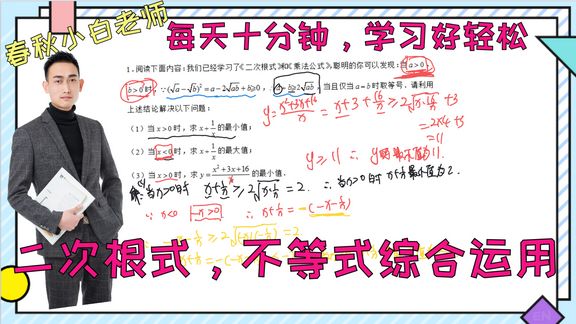 春秋小白老师
每天十分钟，学习好轻松
1.阅读下面内容：我们已经学习了《二次根式》和《乘法公式》，聪明的你可以发现：当a>0，
b>0时，∵(√a-√b)²=a-2√ab+b≥0，∴a+b≥2√ab，当且仅当a=b时取等号．请利用
上述结论解决以下问题：
（1）当x>0时，求x+1/x的最小值；
（2）当x<0时，求x+1/x的最大值；
（3）当x>0时，求y=(x²+3x+16)/x的最小值．
y=(x²+3x+16)/x=x+3+16/x≥2√x·16/x+3
=2×4+3
=11
y≥11 ∴y的最小值为11.
当x>0时 x+1/x≥2√x·1/x=2. ∴当x>0时 x+1/x最小值为2.
∵x<0 -x>0 ∴x+1/x=-(-x-1/x)
二次根式，不等式综合运用